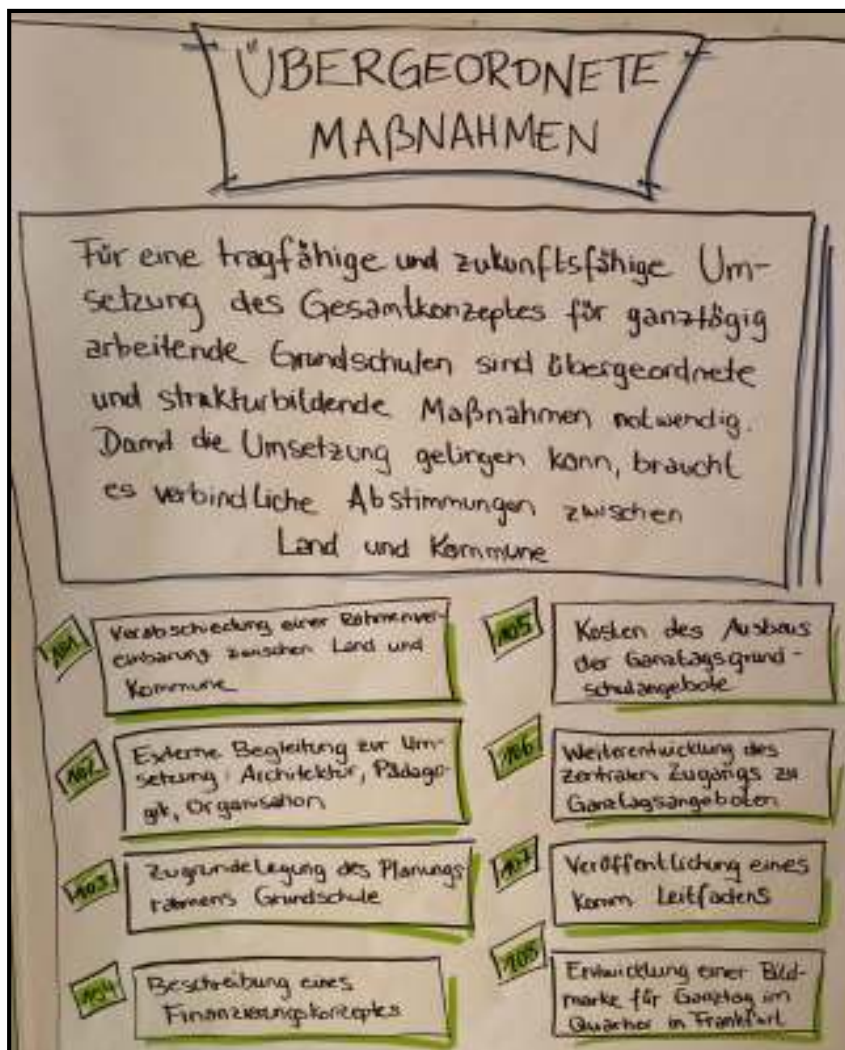 ÜBERGEORDNETE
MAßNAHMEN
Für eine tragfähige und zukunftsfähige Um-
setzung des Gesamtkonzeptes für ganztägig
arbeitende Grundschulen sind übergeordnete
und strukturbildende Maßnahmen notwendig.
Damit die Umsetzung gelingen kann, braucht
es verbindliche Abstimmungen zwischen
Land und Kommune
101
Verabschiedung einer Rahmenver-
einbarung zwischen Land und
Kommune
102
Externe Begleitung zur Um-
setzung: Architektur, Pädago-
gik, Organisation
103
Zugrundelegung des Planungs
rahmens Grundschule
104
Beschreibung eines
Finanzierungskonzeptes
105
Kosten des Ausbaus
der Ganztagsgrund-
schulangebote
106
Weiterentwicklung des
zentralen Zugangs zu
Ganztagsangeboten
107
Veröffentlichung eines
Komm Leitfadens
108
Entwicklung einer Bild-
marke für Ganztag im
Quartier in Frankfurt